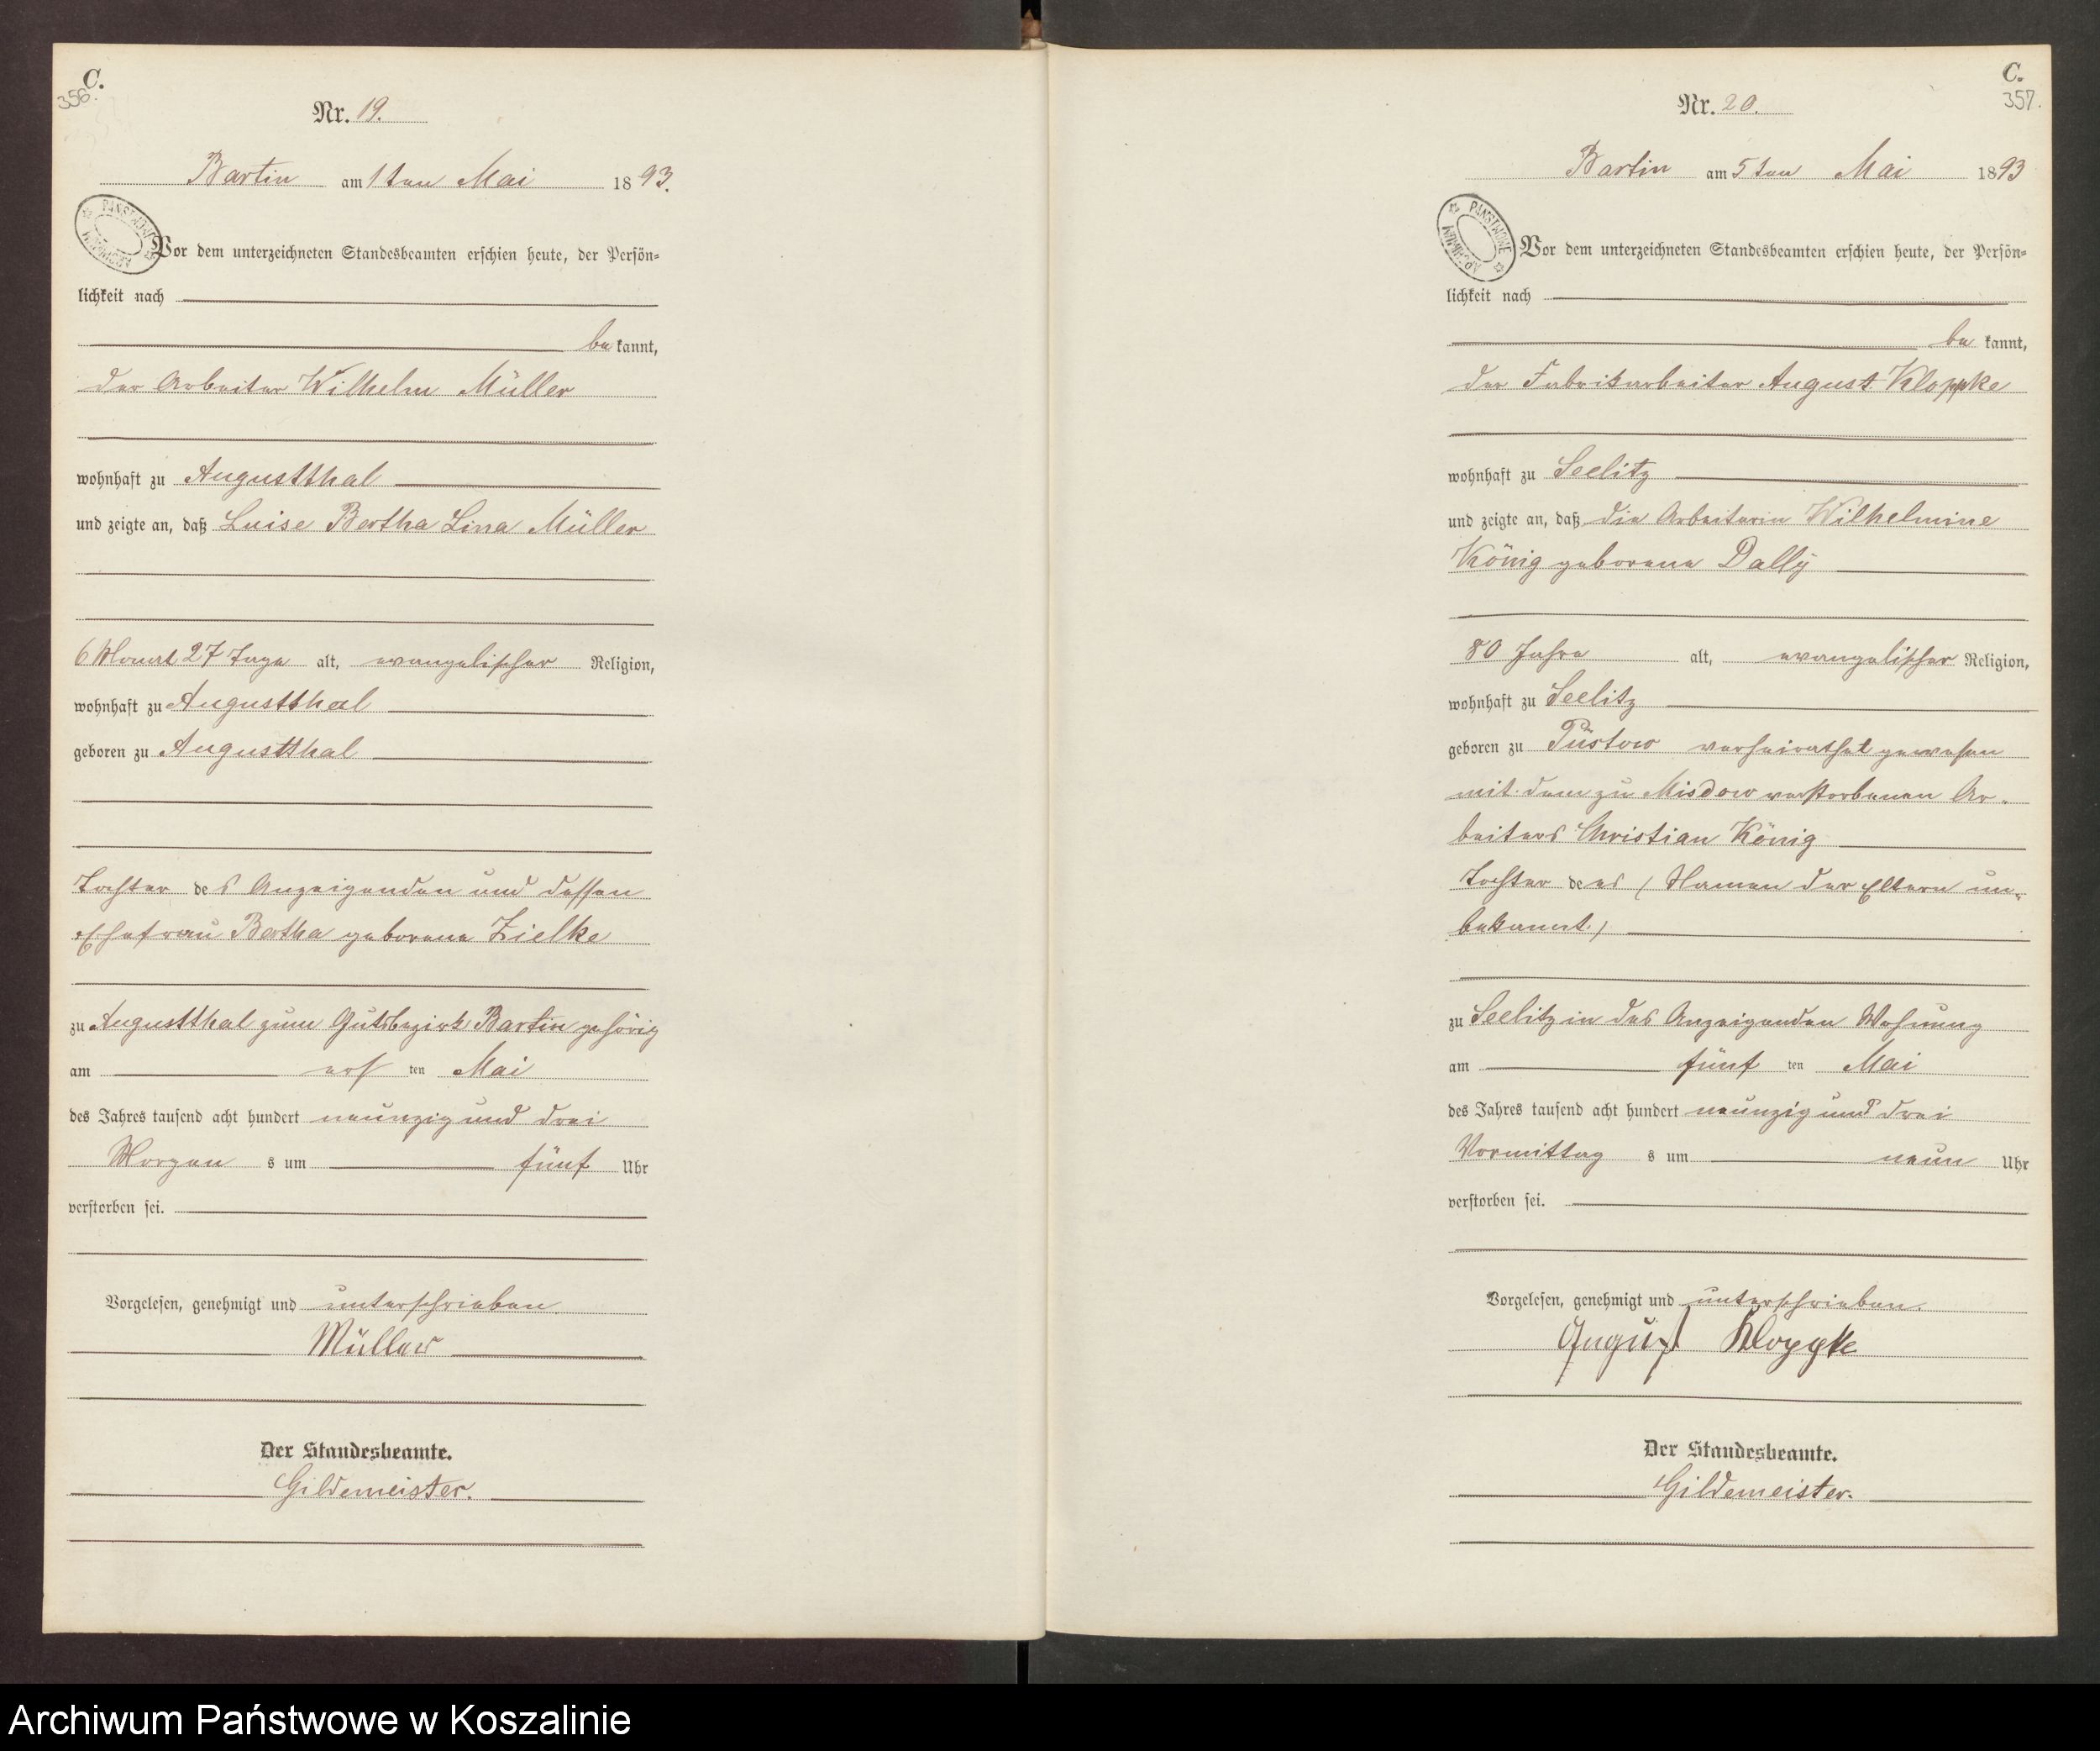 C.
356.
Nr. 19.
Bartin am 1ten Mai 1893.
PAŃSTWOWE ARCHIWUM
Vor dem unterzeichneten Standesbeamten erschien heute, der Persön-
lichkeit nach
bekannt,
der Arbeiter Wilhelm Müller
wohnhaft zu Augustthal
und zeigte an, daß Luise Bertha Lina Müller
6 Monat 27 Tage alt, evangelischer Religion,
wohnhaft zu Augustthal
geboren zu Augustthal
Tochter des Anzeigenden und dessen
Ehefrau Bertha geborene Zielke
zu Augustthal zum Gutsbezirk Bartin gehörig
am ersten Mai
des Jahres tausend acht hundert neunzig und drei
Morgens um fünf Uhr
verstorben sei.
Vorgelesen, genehmigt und unterschrieben
Müller
Der Standesbeamte.
Gildemeister.
C.
357.
Nr. 20.
Bartin am 5ten Mai 1893
PAŃSTWOWE ARCHIWUM
Vor dem unterzeichneten Standesbeamten erschien heute, der Persön-
lichkeit nach
bekannt,
der Fabrikarbeiter August Kloppke
wohnhaft zu Seelitz
und zeigte an, daß die Arbeiterin Wilhelmine
König geborene Dally
80 Jahre alt, evangelischer Religion,
wohnhaft zu Seelitz
geboren zu Püstow verheirathet gewesen
mit dem zu Misdow verstorbenen Ar-
beiters Christian König
Tochter der (Namen der Eltern un-
bekannt)
zu Seelitz in des Anzeigenden Wohnung
am fünften Mai
des Jahres tausend acht hundert neunzig und drei
Vormittags um neun Uhr
verstorben sei.
Vorgelesen, genehmigt und unterschrieben.
August Kloppke
Der Standesbeamte.
Gildemeister.
Archiwum Państwowe w Koszalinie